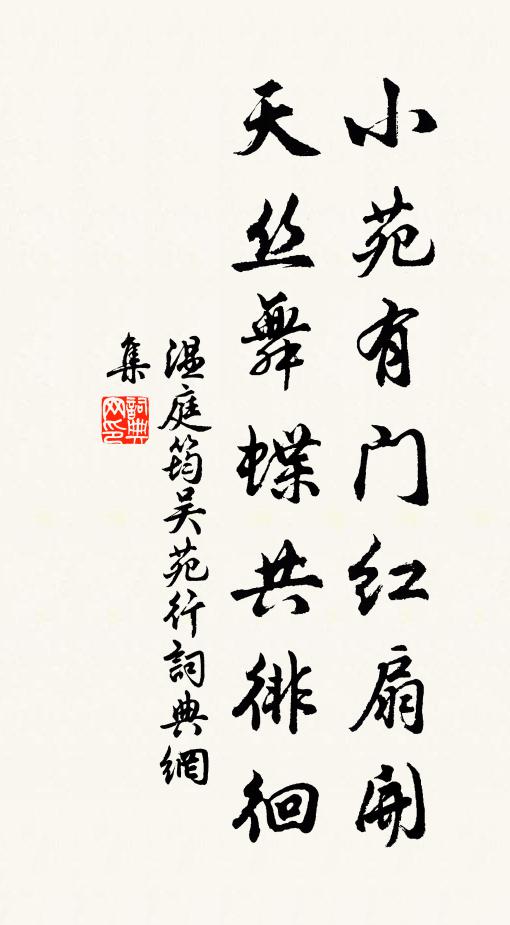 小苑有门红扇開
天丝舞蝶共徘徊
温庭筠吴苑行詞典網
集
詞典网印